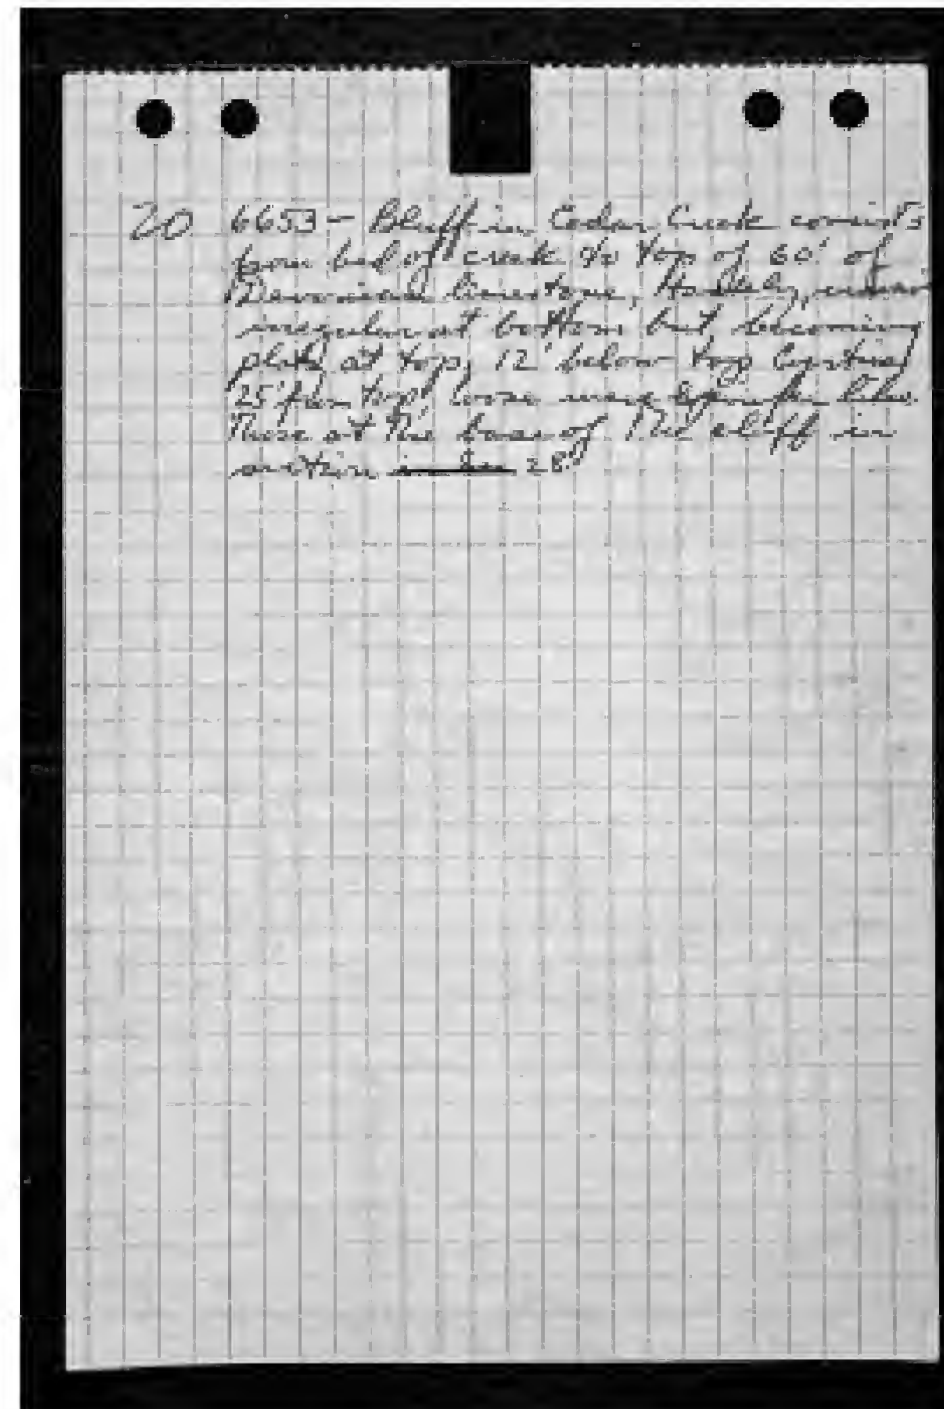 20 6653 - Bluff in Cedar Creek consists
from bed of creek to top of 60' of
Devonian limestone,
irregular at bottom but becoming
platy at top, 12' below top
25' from top loose were like
those at the base of the cliff in
section 28